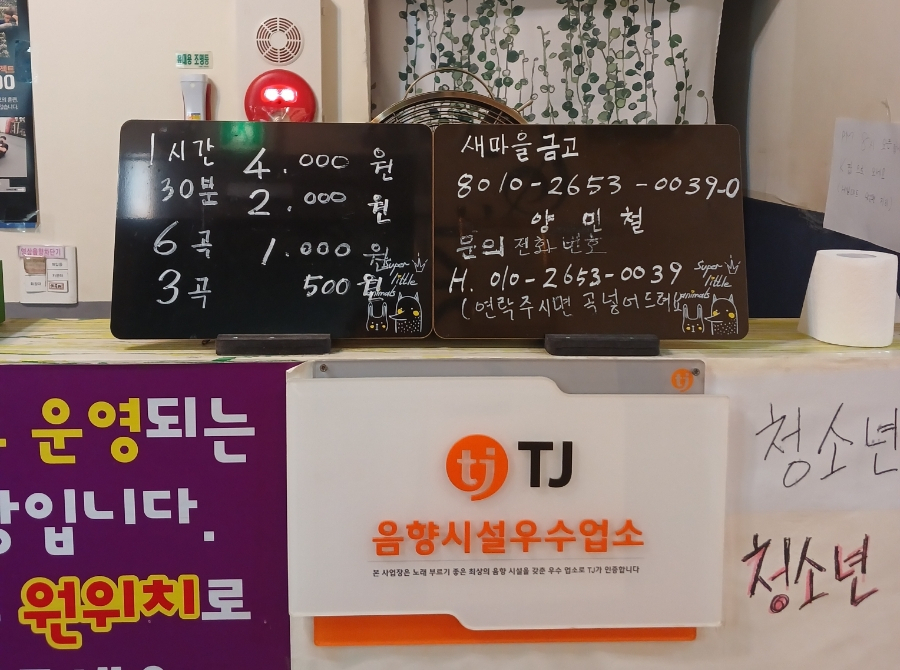 휴대용 조명등
1시간 4.000 원
30분 2.000 원
6곡 1.000 원
3곡 500 원
Super
little
animals
새마을금고
8010-2653-0039-0
양 민 철
문의 전화 번호
H. 010-2653-0039
(연락주시면 곡넣어드려요
Super
little
animals
운영되는
입니다.
원위치로
tj TJ
음향시설우수업소
본 사업장은 노래 부르기 좋은 최상의 음향 시설을 갖춘 우수 업소로 TJ가 인증합니다
tj
청소년
청소년